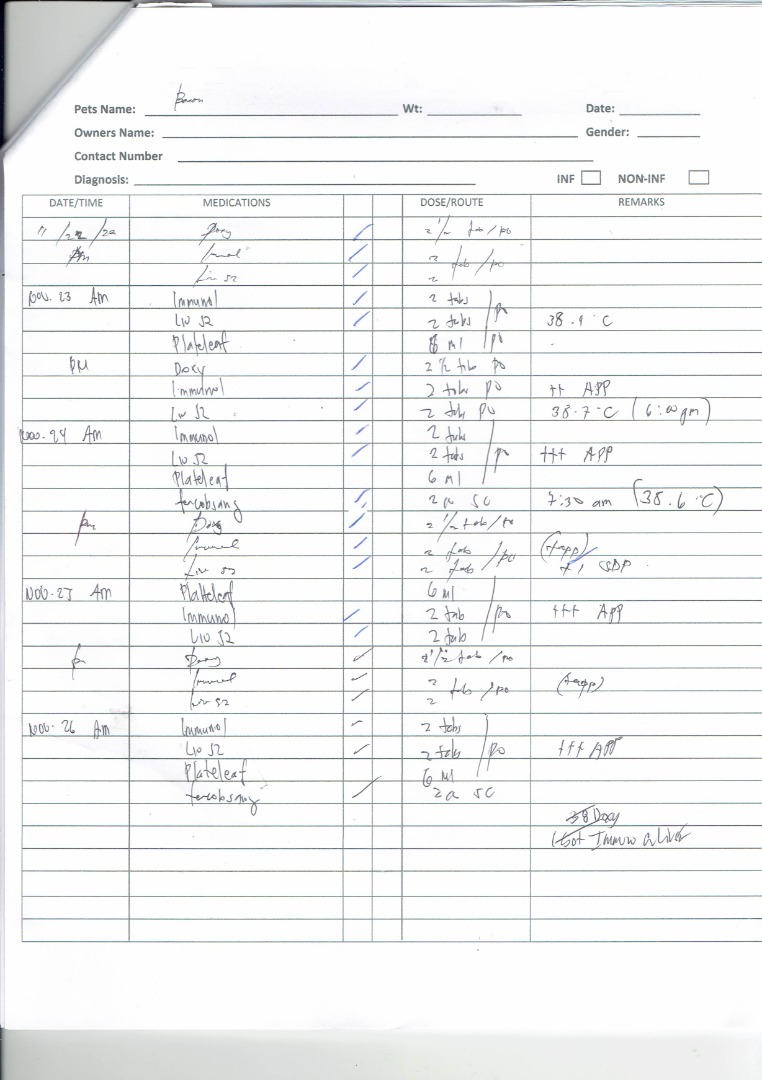 Pets Name: Wt: Date:
Owners Name: Gender:
Contact Number
Diagnosis: INF NON-INF
DATE/TIME MEDICATIONS DOSE/ROUTE REMARKS
11/22/22 Doxy 2 1/2 tab/po
Am Immunol 2 tab/po
Liv 52 2
Nov. 23 Am Immunol 2 tabs
Liv 52 2 tabs po 38.9 °C
Plateleaf 8 ml po
PM Doxy 2 1/2 tab po
Immunol 2 tabs po ++ APP
Liv 52 2 tabs po 38.7 °C (6:00 pm)
Nov. 24 Am Immunol 2 tabs
Liv 52 2 tabs po +++ APP
Plateleaf 6 ml
fercobsang 2 SC 7:30 am (38.6 °C)
pm Doxy 2 1/2 tab/po
Immunol 2 tabs /po (+app)
Liv 52 2 tabs
Nov. 25 Am Plateleaf 6 ml
Immunol 2 tab /po +++ APP
Liv 52 2 tab
pm Doxy 2 1/2 tab/po
Immunol 2 tab /po (+app)
Liv 52 2
Nov. 26 Am Immunol 2 tabs
Liv 52 2 tabs /po +++ APP
Plateleaf 6 ml
fercobsang 2 SC
38 Doxy
Immuno & liver